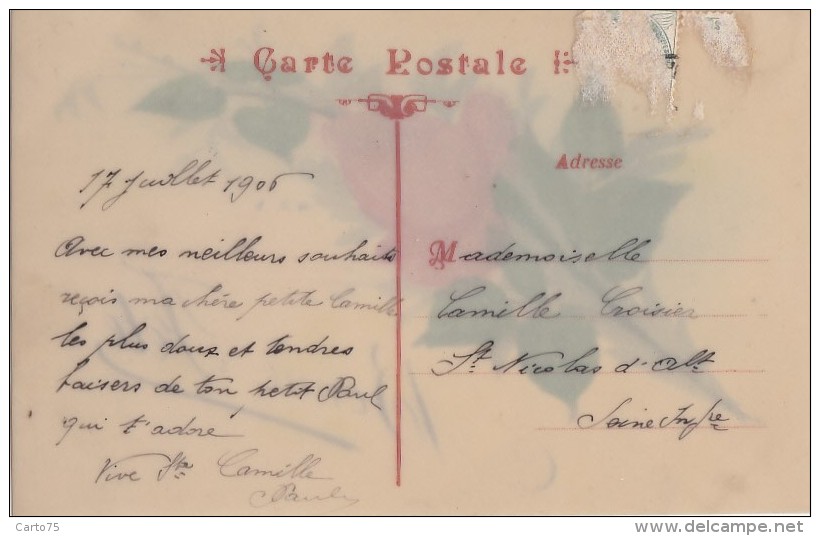 Carte Postale
Adresse
17 Juillet 1906
Avec mes meilleurs souhaits
reçois ma chère petite Camille
les plus doux et tendres
baisers de ton petit Paul
qui t'adore
Vive Ste Camille
Paul
Mademoiselle
Camille Croisier
St Nicolas d'Alt
Seine Infre
Carto75
www.delcampe.net